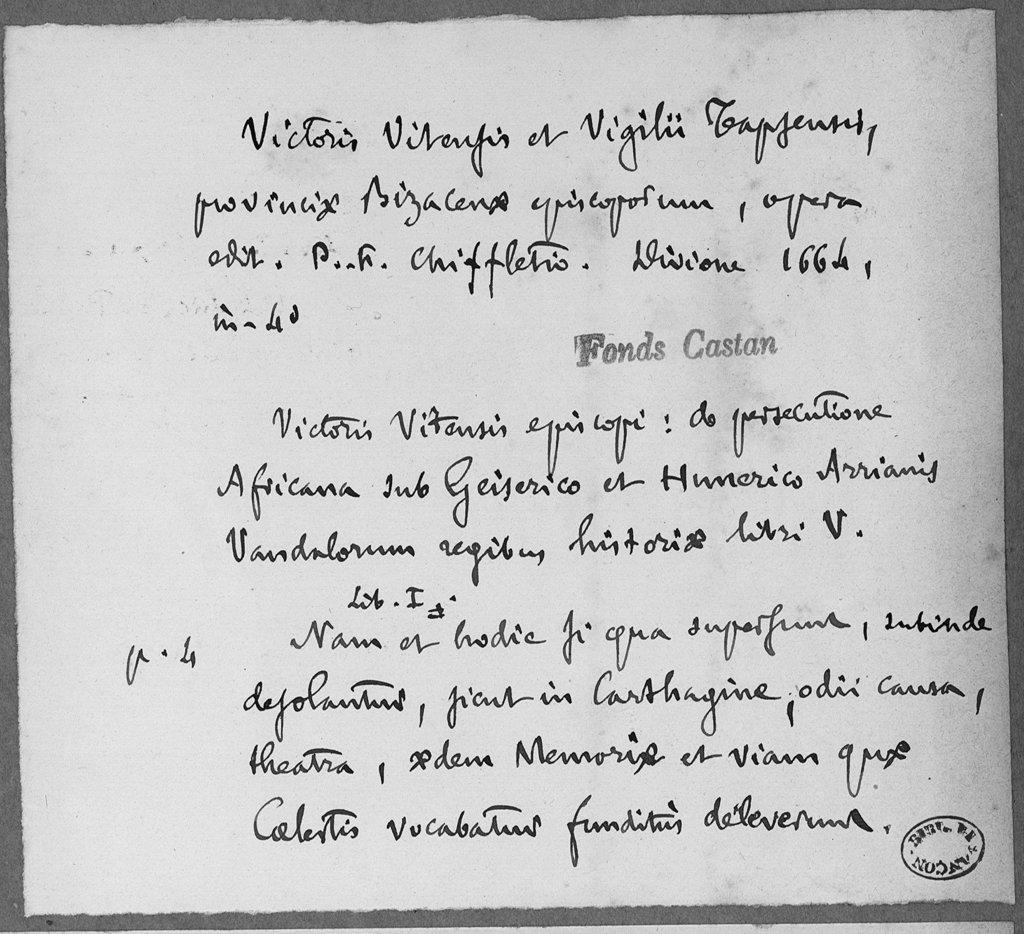 Victoris Vitensis et Vigilii Tapsensis,
provinciæ Bizacenæ episcoporum, opera
edit. P.-F. Chiffletio. Divione 1664,
in-4°
Fonds Castan
Victoris Vitensis episcopi : de persecutione
Africana sub Geiserico et Hunerico Arrianis
Vandalorum regibus historiæ libri V.
Lib. I.
p. 4 Nam et hodie si qua supersunt, subinde
desolantur, sicut in Carthagine, odii causa,
theatra, ædem Memoriæ et viam quæ
Cœlestis vocabatur funditùs deleverunt.
BIBL. BESANÇON